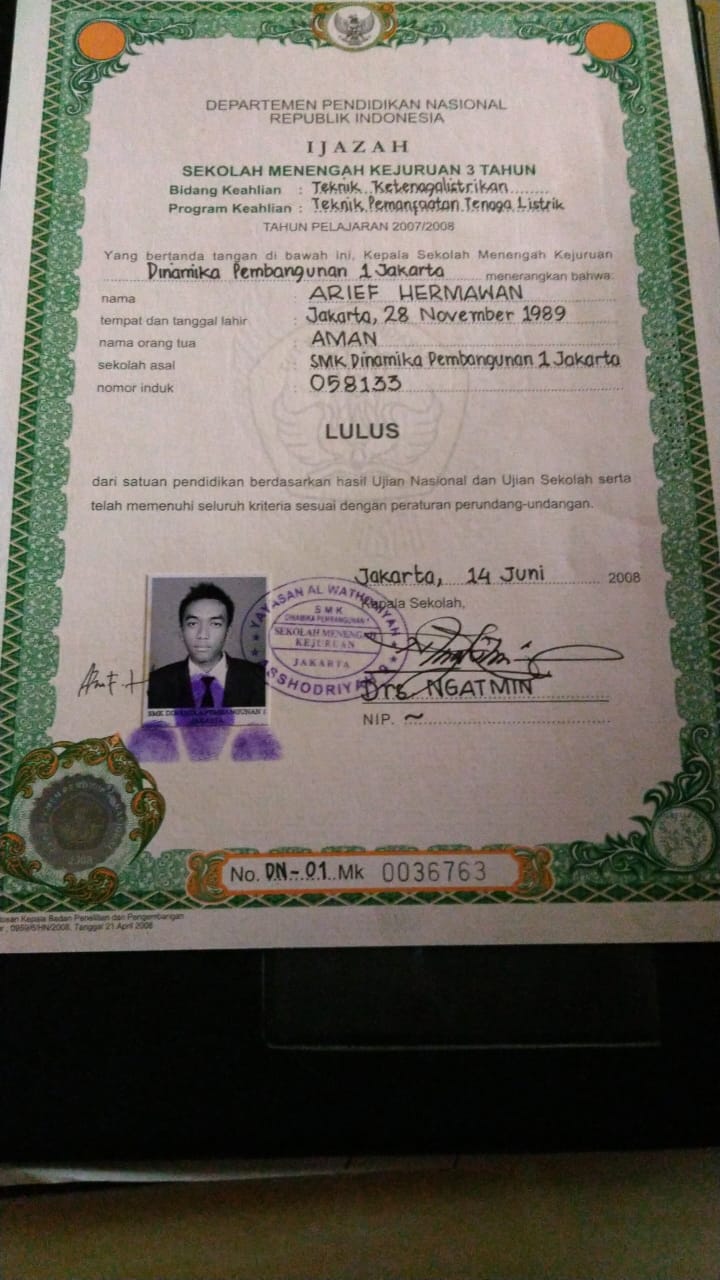 DEPARTEMEN PENDIDIKAN NASIONAL
REPUBLIK INDONESIA
IJAZAH
SEKOLAH MENENGAH KEJURUAN 3 TAHUN
Bidang Keahlian : Teknik Ketenagalistrikan
Program Keahlian : Teknik Pemanfaatan Tenaga Listrik
TAHUN PELAJARAN 2007/2008
Yang bertanda tangan di bawah ini, Kepala Sekolah Menengah Kejuruan
Dinamika Pembangunan 1 Jakarta menerangkan bahwa:
nama : ARIEF HERMAWAN
tempat dan tanggal lahir : Jakarta, 28 November 1989
nama orang tua : AMAN
sekolah asal : SMK Dinamika Pembangunan 1 Jakarta
nomor induk : 058133
LULUS
dari satuan pendidikan berdasarkan hasil Ujian Nasional dan Ujian Sekolah serta
telah memenuhi seluruh kriteria sesuai dengan peraturan perundang-undangan.
Jakarta, 14 Juni 2008
Kepala Sekolah,
YAYASAN AL WATHONIYAH
SMK
DINAMIKA PEMBANGUNAN 1
SEKOLAH MENENGAH
KEJURUAN
JAKARTA
ASSHODRIYAH 9
Drs. NGATMIN
NIP. ~
SMK DINAMIKA PEMBANGUNAN 1
JAKARTA
2008
No. DN-01 Mk 0036763
Kepala Badan Penelitian dan Pengembangan
0959/6/HN/2008, Tanggal 21 April 2008